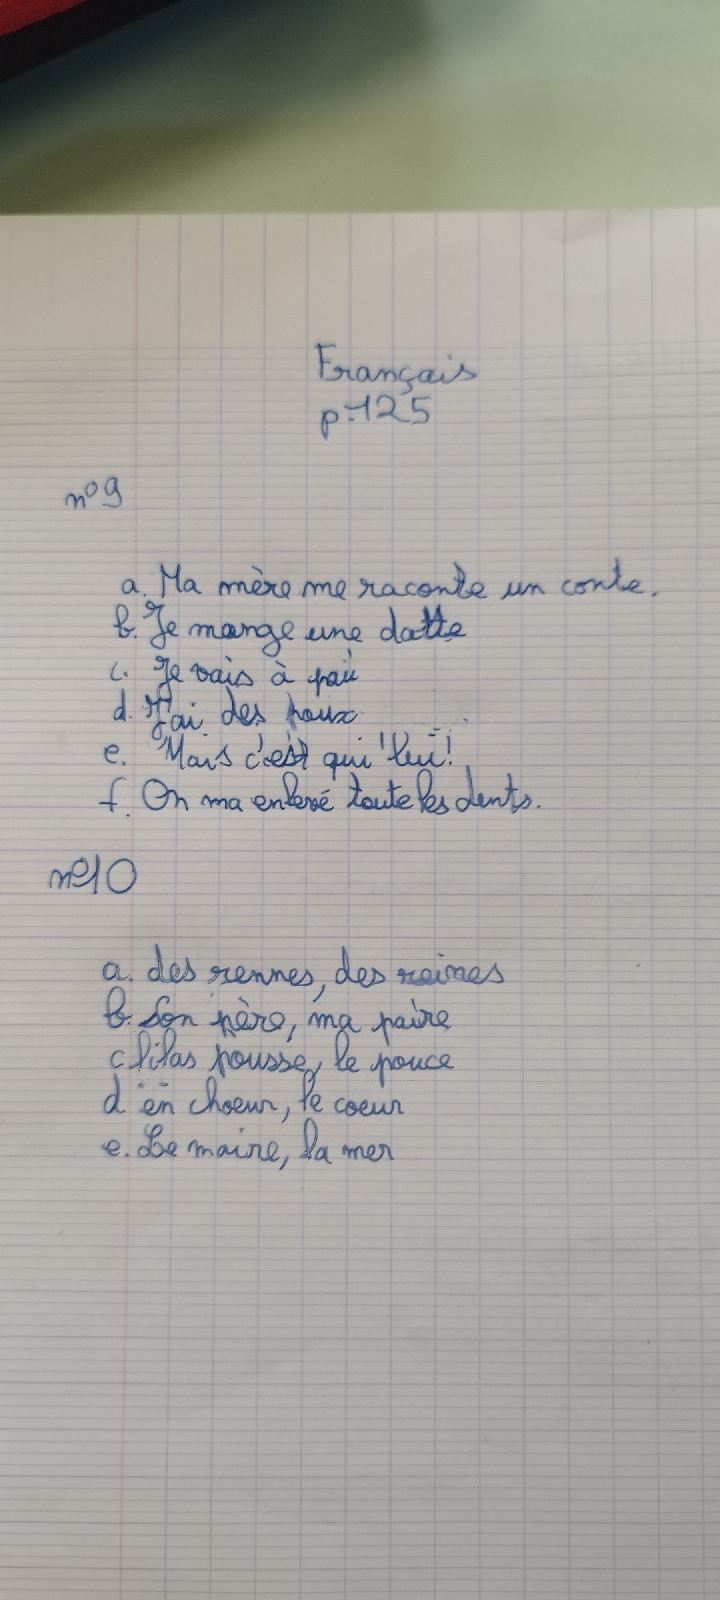 Français
p.125
n°9
a. Ma mère me raconte un conte.
b. Je mange une datte
c. Je vais à pau
d. J'ai des poux
e. Mais c'est qui "lui"!
f. On ma enlevé toute les dents.
n°10
a. des rennes, des reines
b. Son père, ma paire
c lilas pousse, le pouce
d en choeur, le coeur
e. Le maire, la mer